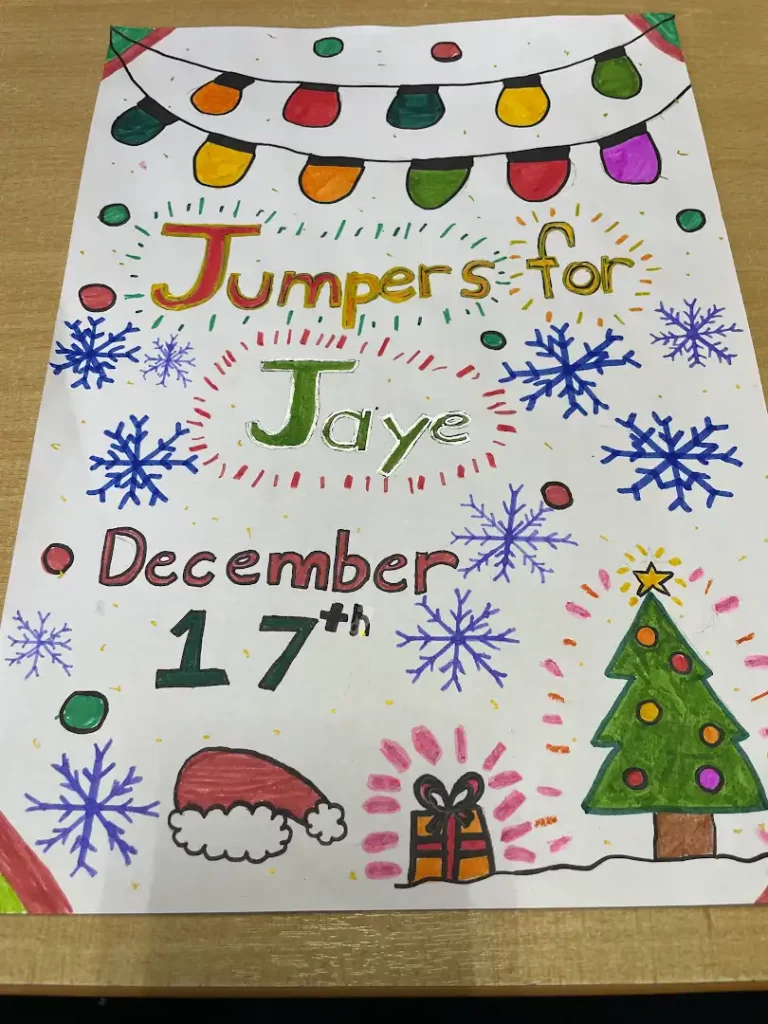 Jumpers for
Jaye
December
17th